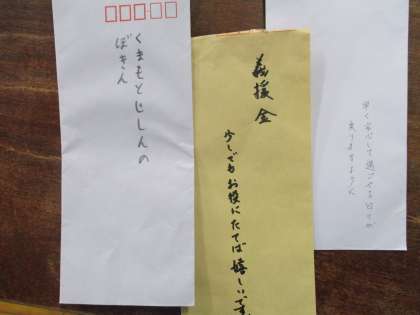 くまもとじしんの
ぼきん
義援金
少しでもお役にたてば嬉しいです。
早く安心して過ごせる日々が
戻りますように